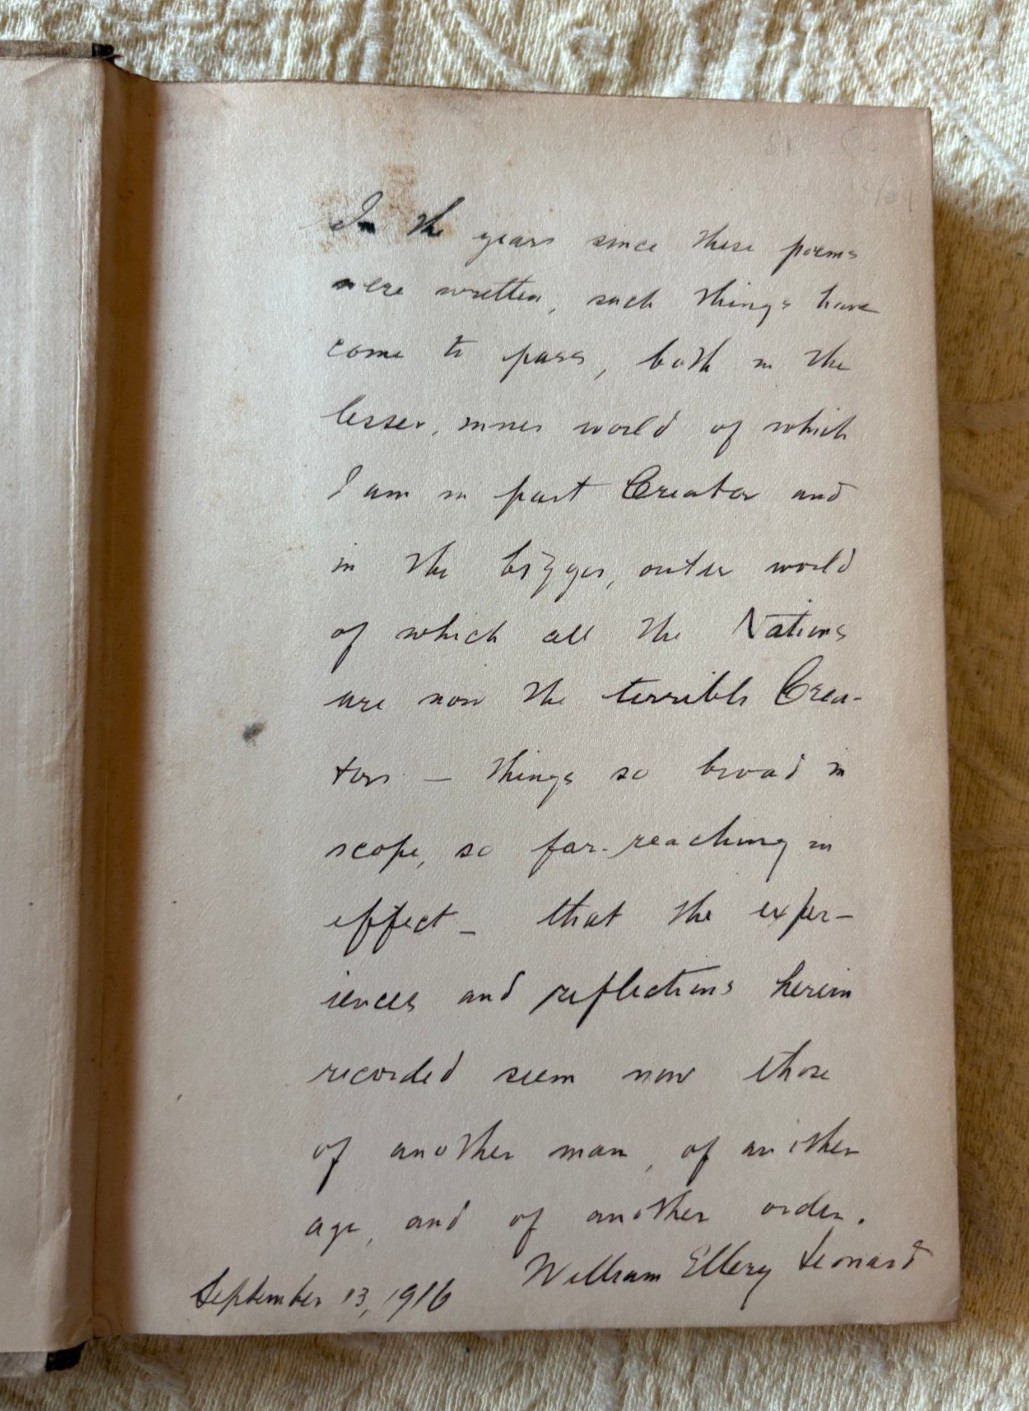 In the years since these poems
were written, such things have
come to pass, both in the
lesser, inner world of which
I am in part Creator and
in the bigger, outer world
of which all the Nations
are now the terrible Crea-
tors — things so broad in
scope, so far-reaching in
effect — that the exper-
iences and reflections herein
recorded seem now those
of another man, of another
age, and of another order.
William Ellery Leonard
September 13, 1916